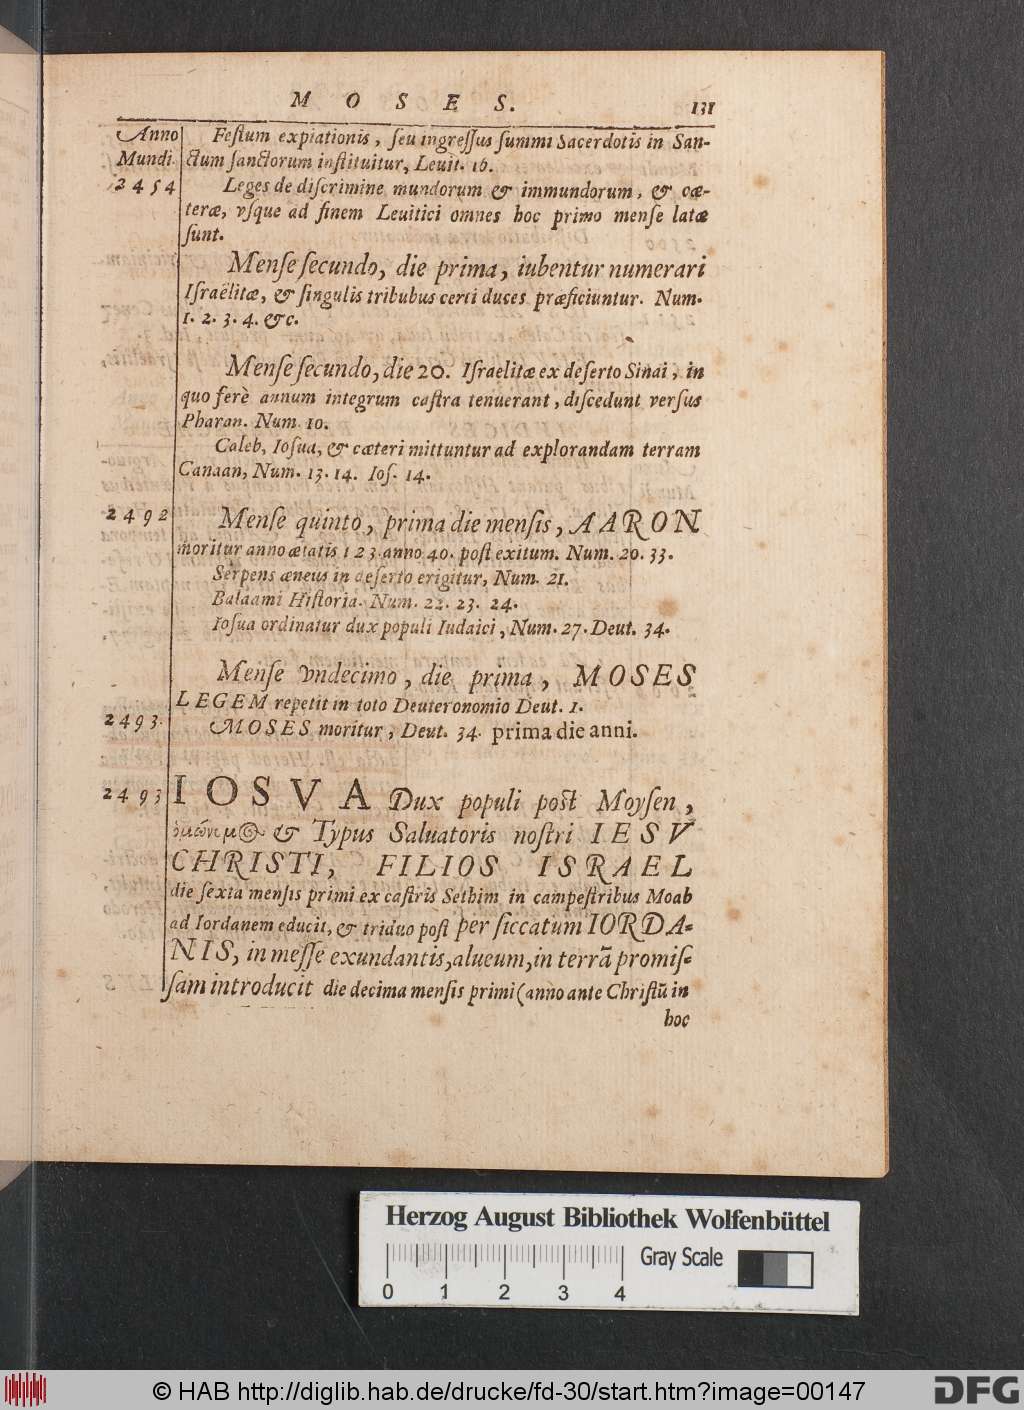 M O S E S. 131
Anno Festum expiationis, seu ingressus summi Sacerdotis in San-
Mundi ctum sanctorum instituitur, Leuit. 16.
2454 Leges de discrimine mundorum & immundorum, & cæ-
teræ, vsque ad finem Leuitici omnes hoc primo mense latæ
sunt.
Mense secundo, die prima, iubentur numerari
Israëlitæ, & singulis tribubus certi duces præficiuntur. Num.
1. 2. 3. 4. &c.
Mense secundo, die 20. Israelitæ ex deserto Sinai, in
quo ferè annum integrum castra tenuerant, discedunt versus
Pharan. Num. 10.
Caleb, Iosua, & cæteri mittuntur ad explorandam terram
Canaan, Num. 13. 14. Ios. 14.
2492 Mense quinto, prima die mensis, AARON
moritur anno ætatis 123. anno 40. post exitum. Num. 20. 33.
Serpens æneus in deserto erigitur, Num. 21.
Balaami Historia. Num. 22. 23. 24.
Iosua ordinatur dux populi Iudaici, Num. 27. Deut. 34.
Mense vndecimo, die prima, MOSES
LEGEM repetit in toto Deuteronomio Deut. 1.
2493. MOSES moritur, Deut. 34. prima die anni.
2493 IOSVA Dux populi post Moysen,
ὁμώνυμος & Typus Saluatoris nostri IESV
CHRISTI, FILIOS ISRAEL
die sexta mensis primi ex castris Sethim in campestribus Moab
ad Iordanem educit, & triduo post per siccatum IORDA-
NIS, in messe exundantis, alueum, in terrā promis-
sam introducit die decima mensis primi (anno ante Christū in
hoc
Herzog August Bibliothek Wolfenbüttel
Gray Scale
0 1 2 3 4
© HAB http://diglib.hab.de/drucke/fd-30/start.htm?image=00147
DFG